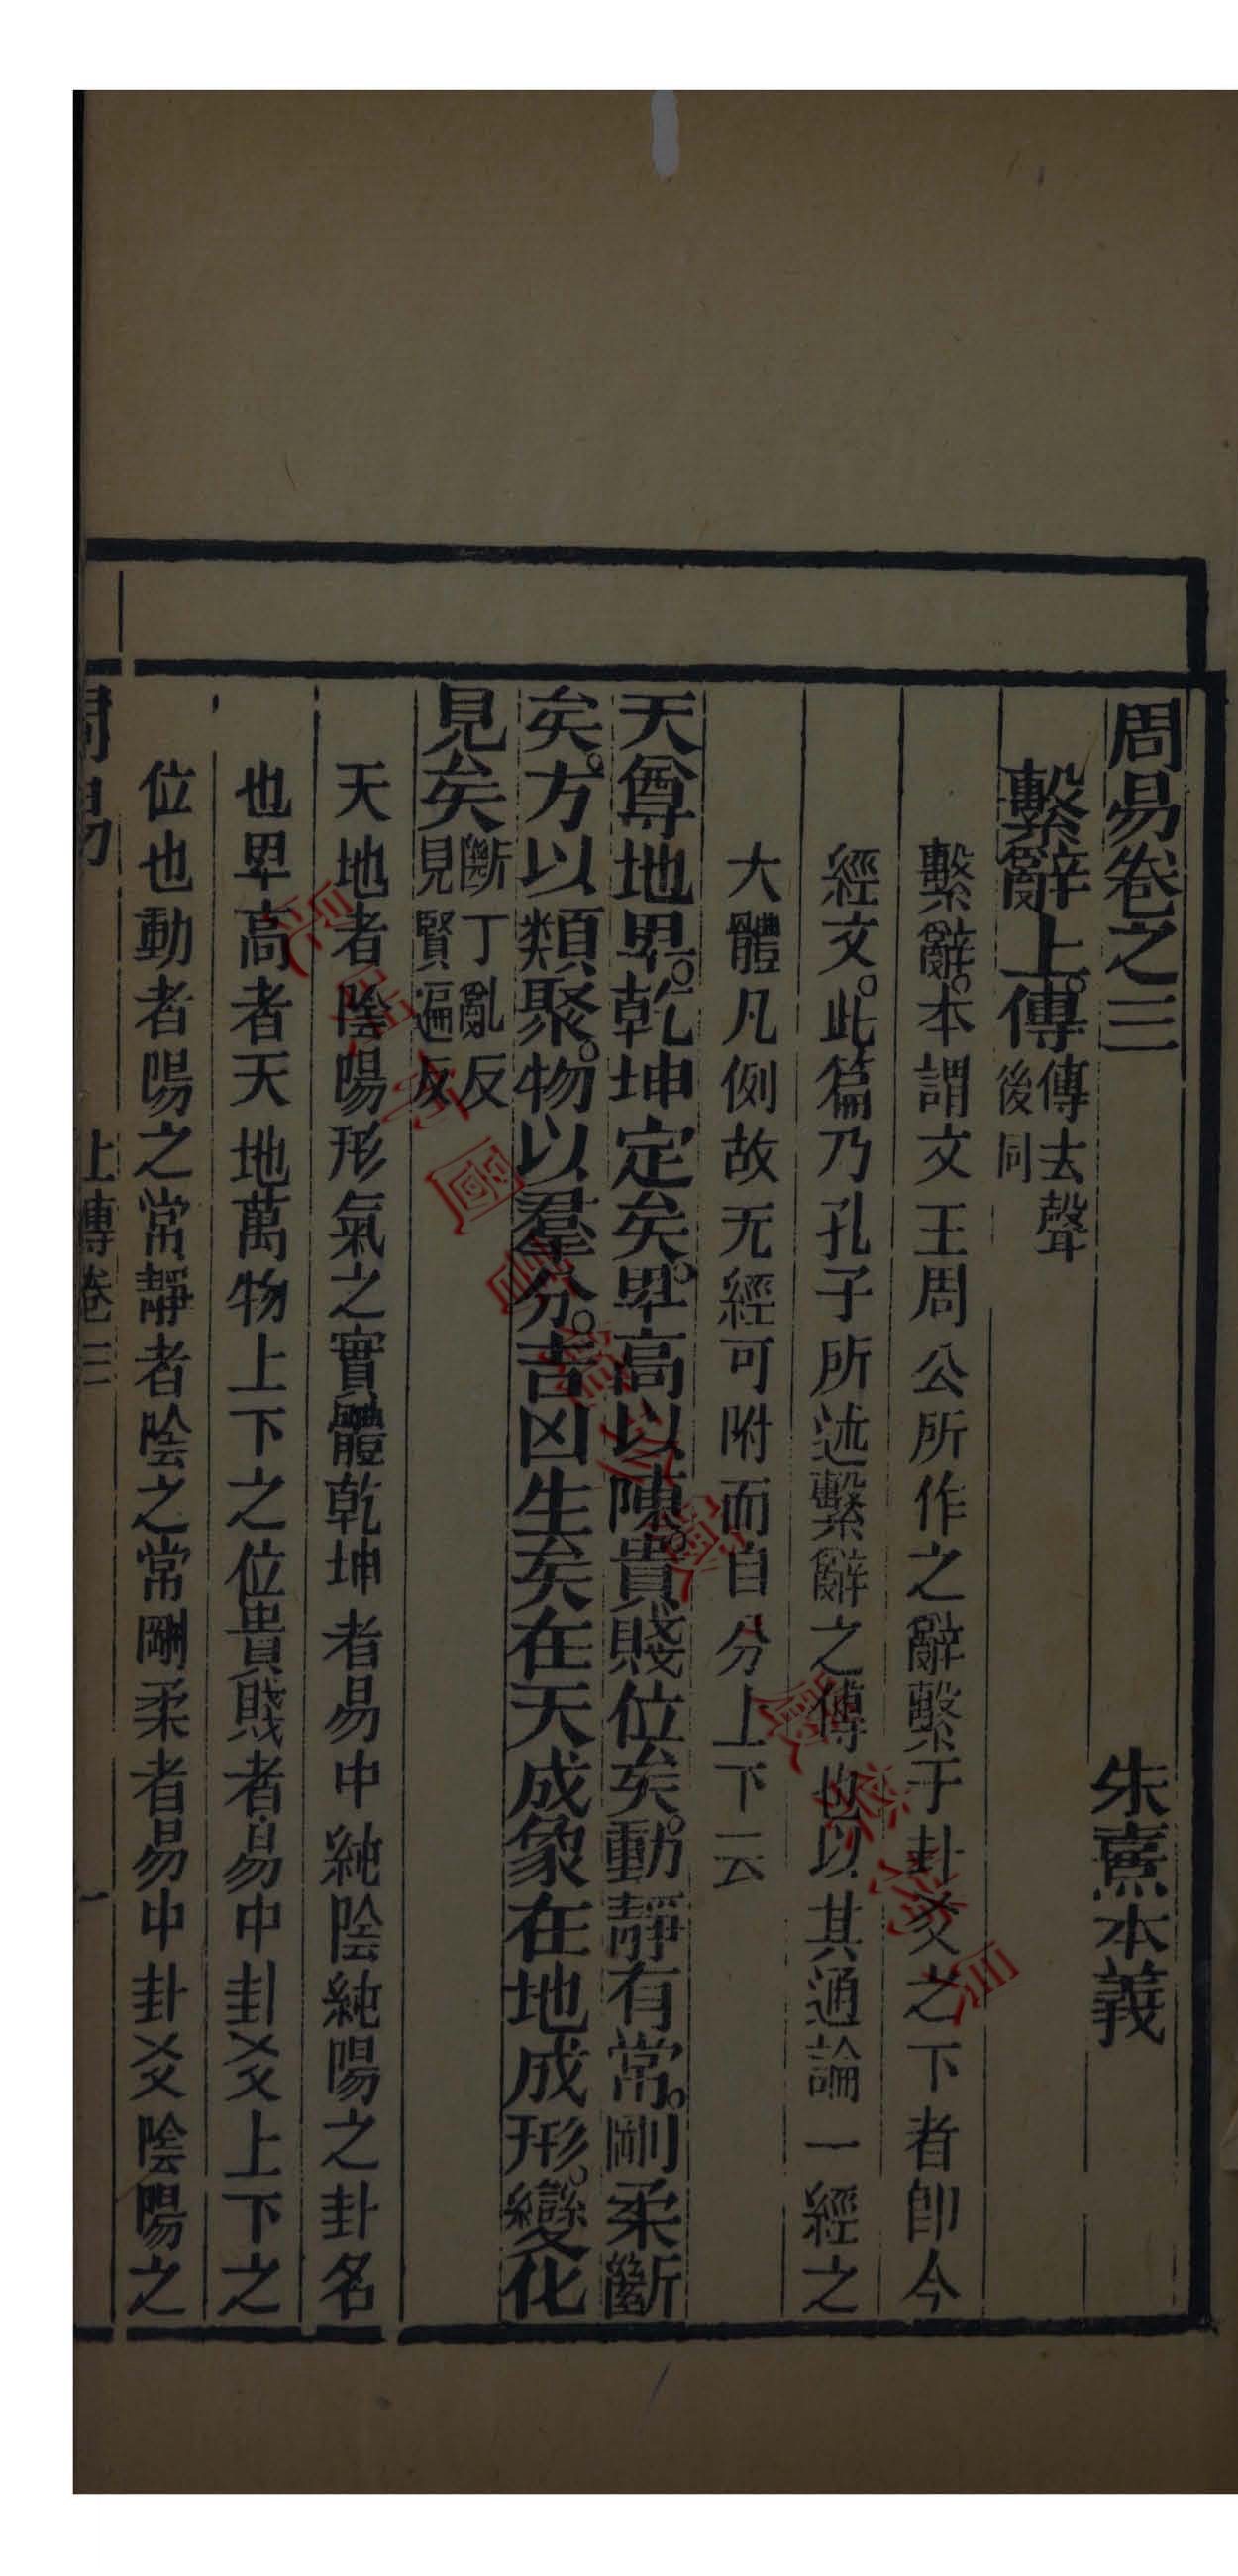 周易卷之三　朱熹本義
繫辭上。傳傳去聲後同
繫辭。本謂文王周公所作之辭繫于卦爻之下者卽今
經文。此篇乃孔子所述繫辭之傳也以其通論一經之
大體凡例故无經可附而自分上下云
天尊地卑。乾坤定矣。卑高以陳。貴賤位矣。動靜有常。剛柔斷
矣。方以類聚。物以羣分。吉凶生矣在天成象在地成形。變化
見矣斷丁亂反見賢遍反
天地者陰陽形氣之實體乾坤者易中純陰純陽之卦名
也卑高者天地萬物上下之位貴賤者易中卦爻上下之
位也動者陽之常靜者陰之常剛柔者易中卦爻陰陽之
周易　上傳卷三　一